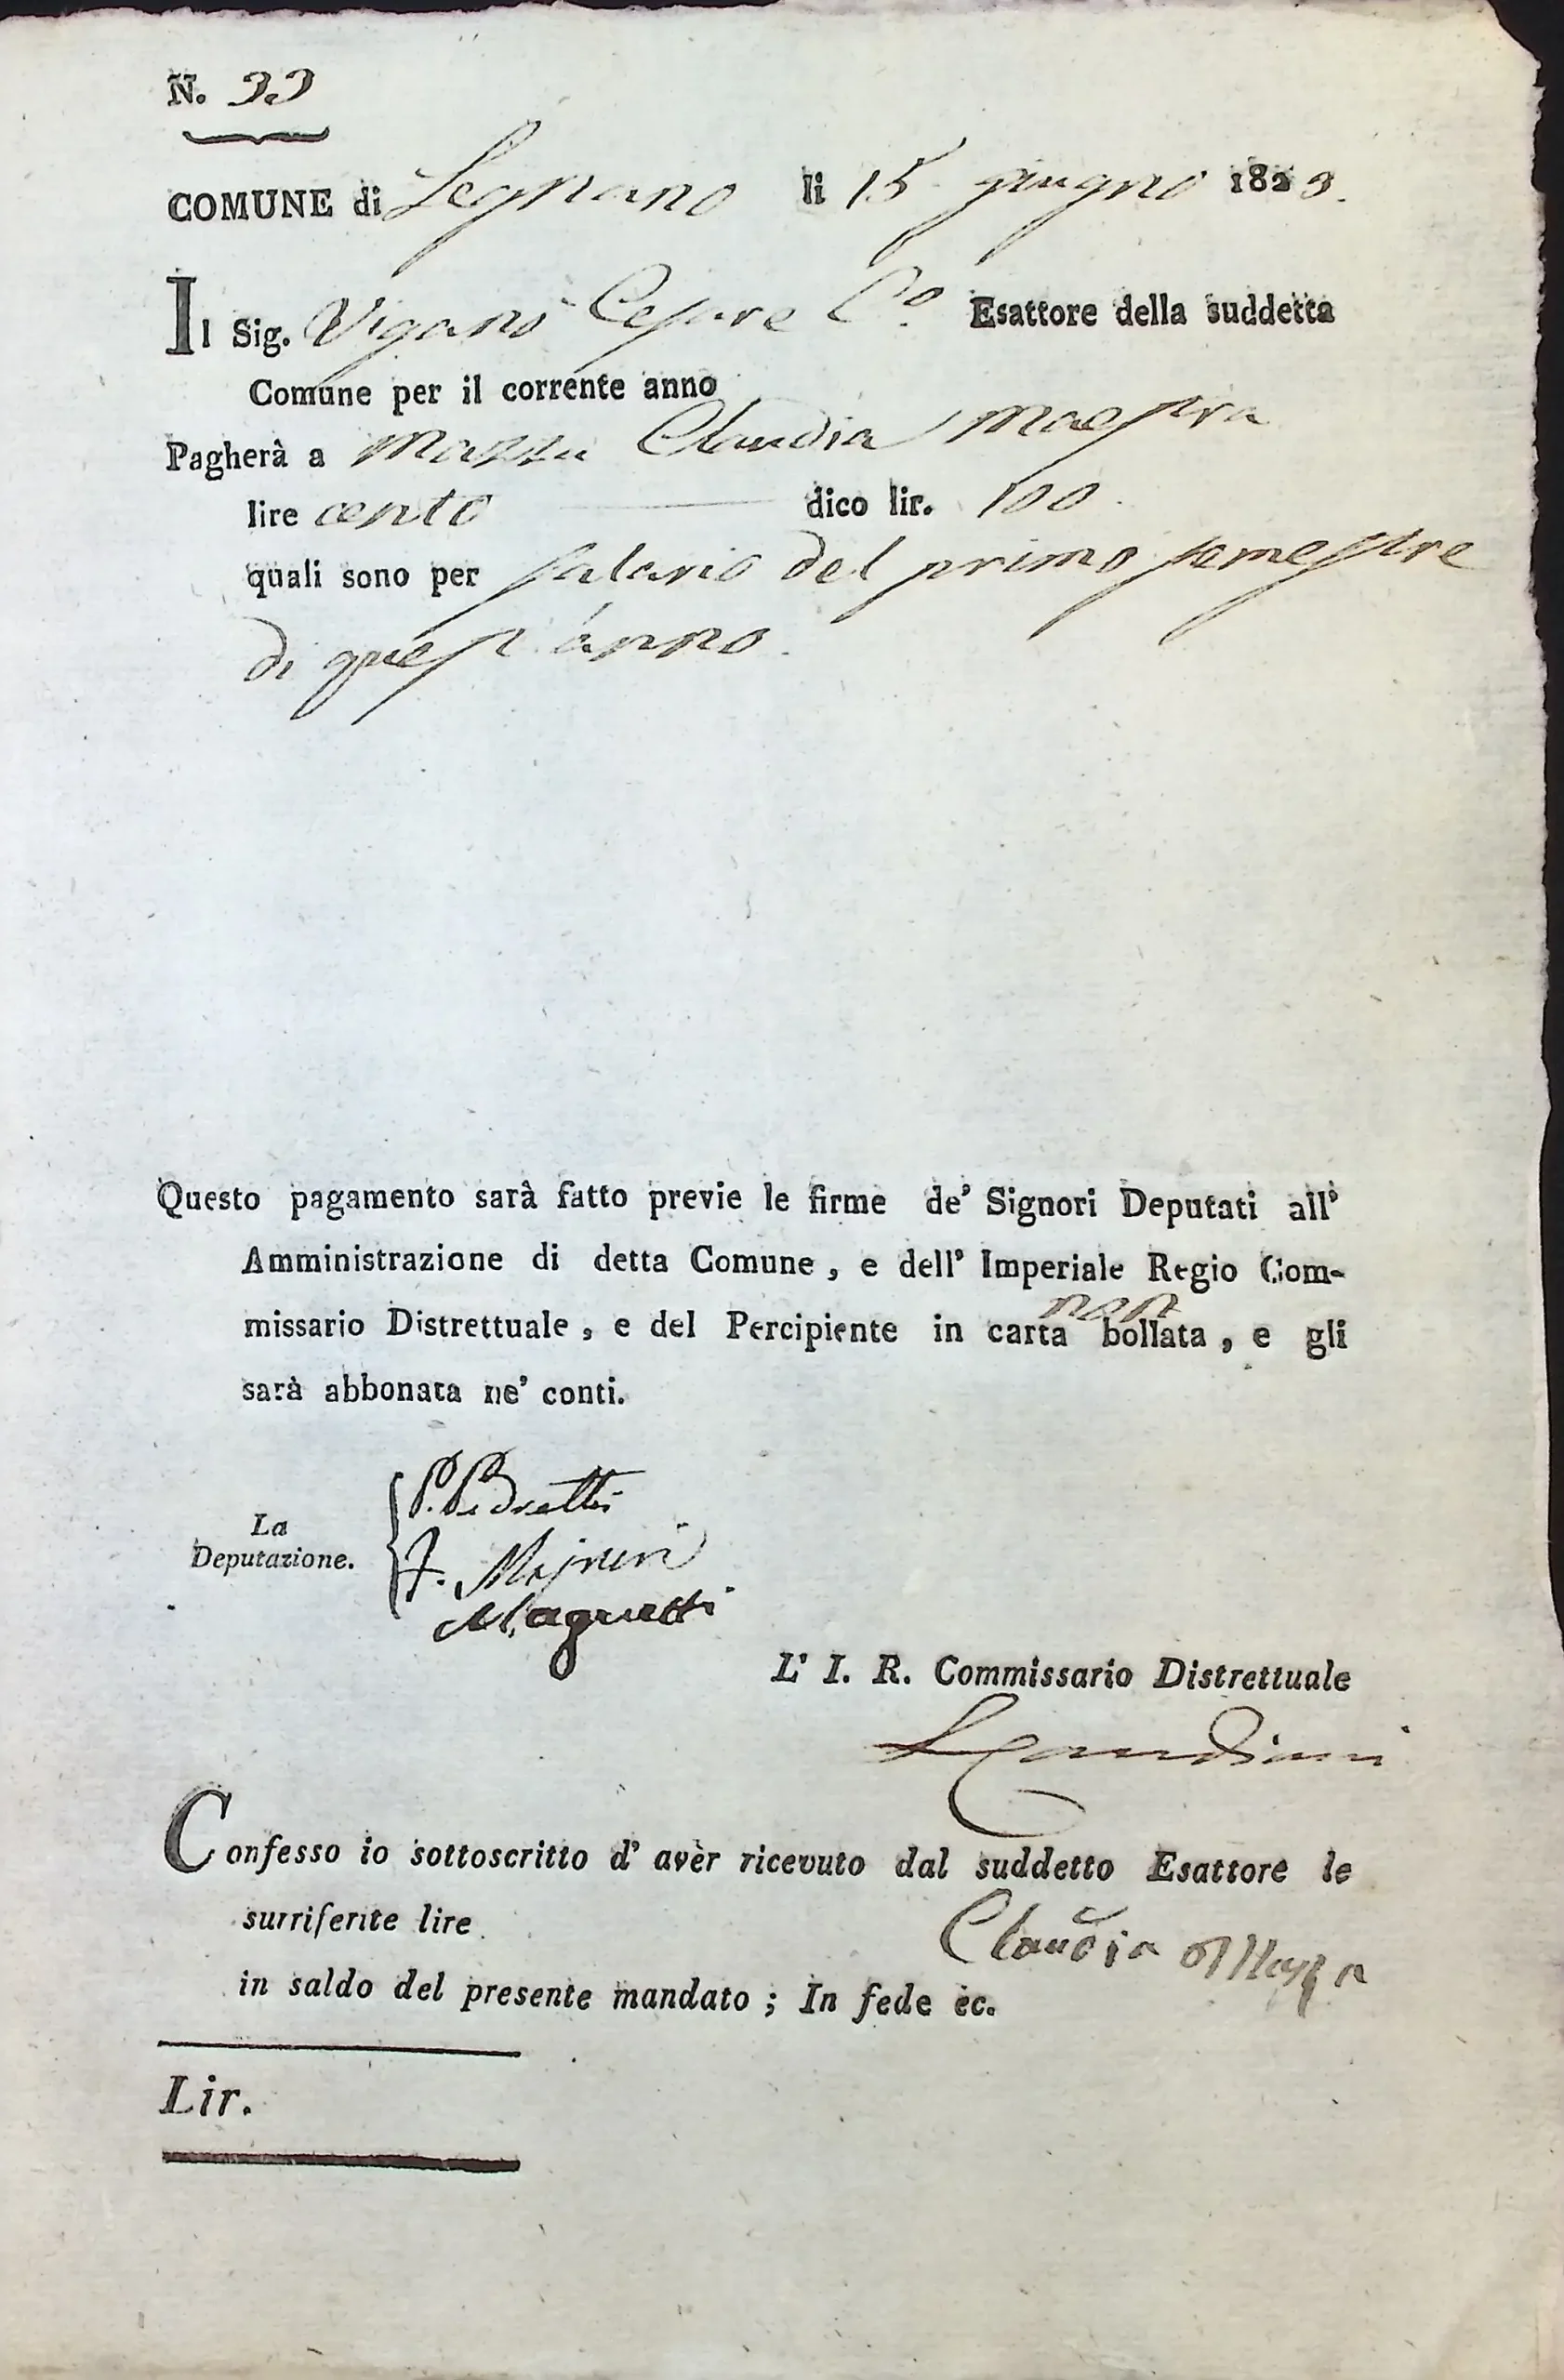 N. 33
COMUNE di Legnano li 15 giugno 1823.
Il Sig. Viganò Cesare C.o Esattore della suddetta
Comune per il corrente anno
Pagherà a Claudia Maestra
lire cento dico lir. 100.
quali sono per salario del primo semestre
di quest'anno.
Questo pagamento sarà fatto previe le firme de' Signori Deputati all'
Amministrazione di detta Comune, e dell' Imperiale Regio Com-
missario Distrettuale, e del Percipiente in carta non bollata, e gli
sarà abbonata ne' conti.
La
Deputazione.
P. Pedretti
L' I. R. Commissario Distrettuale
Confesso io sottoscritto d' aver ricevuto dal suddetto Esattore le
surriferite lire
Claudia
in saldo del presente mandato; In fede ec.
Lir.